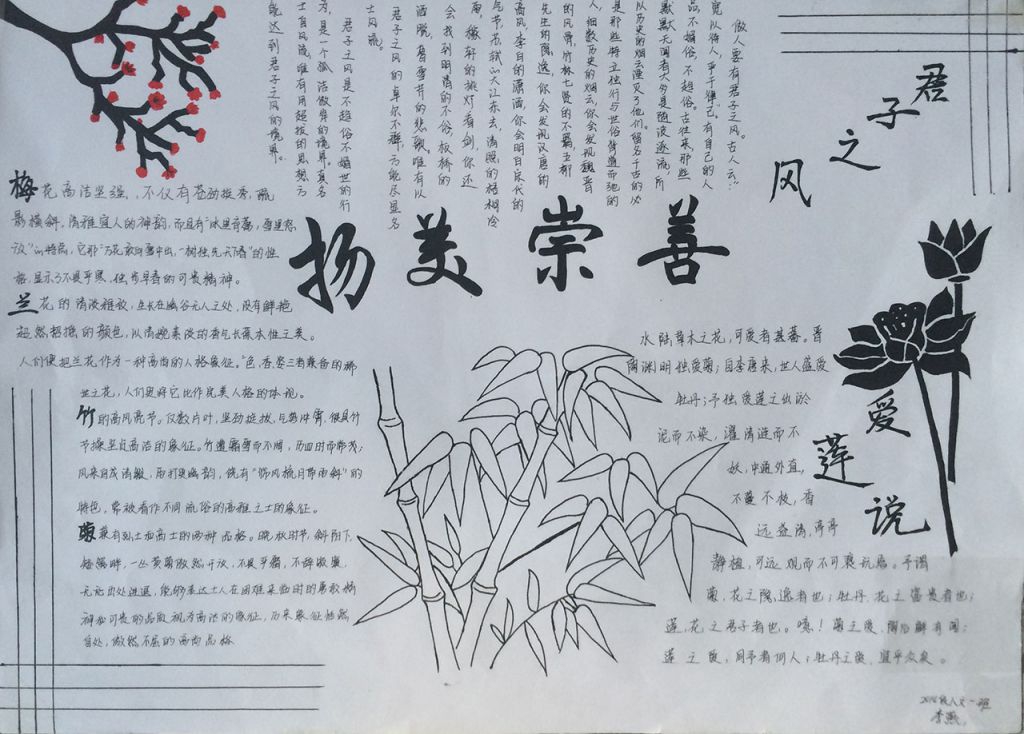 君子之风
做人要有君子之风。古人云："
宽以待人，平于律己。有自己的人
品不媚俗，不超俗。古往来，那些
默默无闻者大多是随波逐流，所
以历史的烟云湮灭了他们。留名千古的必
是那些特立独行与世俗背道而驰的
人。细数历史的烟云，你会发现魏晋
的风骨，竹林七贤的不羁，五柳
先生的隐逸，你会发现汉唐的
高风，李白的潇洒，你会明白宋代的
气节，苏轼的大江东去，清照的梧桐冷
雨，稼轩的挑灯看剑，你还
会找到明清的不俗，板桥的
洒脱，曹雪芹的悲歌，唯有以
君子之风的卓尔不群，方能尽显名
士风流。
君子之风是不超俗不媚世的行
为，是一个孤洁傲岸的境界。真名
士自风流，唯有用超拔的思想方
能达到君子之风的境界。
扬美崇善
梅花高洁坚强，不仅有苍劲挺秀，疏
影横斜，清雅宜人的神韵，而且有"冰里育蕾，雪里怒
放"的特质，它那"万花敢向雪中出，一树独先天下春"的性
格，显示了不畏严寒，独步早春的可贵精神。
兰花的清淡雅致，生长在幽谷无人之处，没有鲜艳
超然招摇的颜色，从清婉素淡的香气长葆本性之美。
人们便把兰花作为一种高尚的人格象征。"色、香、姿三者兼备的稀
世之花，人们更将它比作完美人格的体现。
竹的高风亮节。仅数片叶，坚劲挺拔，气势冲霄，很具竹
节操坚贞高洁的象征。竹遭霜雪而不凋，历四时而常茂；
风来自成清籁，雨打更幽韵，饶有"筛风梳月带雨斜"的
特色，常被看作不同流俗的高雅之士的象征。
菊兼有烈士和高士的两种品格。晚秋时节，斜阳下，
矮篱畔，一丛黄菊傲然开放，不畏严霜，不辞寂寞，
无论出处进退，能够表达士人在困难来临时的勇敢精
神和可贵的品质视为高洁的象征，历来象征恬然
自处，傲然不屈的高尚品格
爱莲说
水陆草木之花，可爱者甚蕃。晋
陶渊明独爱菊；自李唐来，世人盛爱
牡丹；予独爱莲之出淤
泥而不染，濯清涟而不
妖，中通外直，
不蔓不枝，香
远益清，亭亭
静植，可远观而不可亵玩焉。予谓
菊，花之隐逸者也；牡丹，花之富贵者也；
莲，花之君子者也。噫！菊之爱，陶后鲜有闻；
莲之爱，同予者何人；牡丹之爱，宜乎众矣。
人文一班
李燕